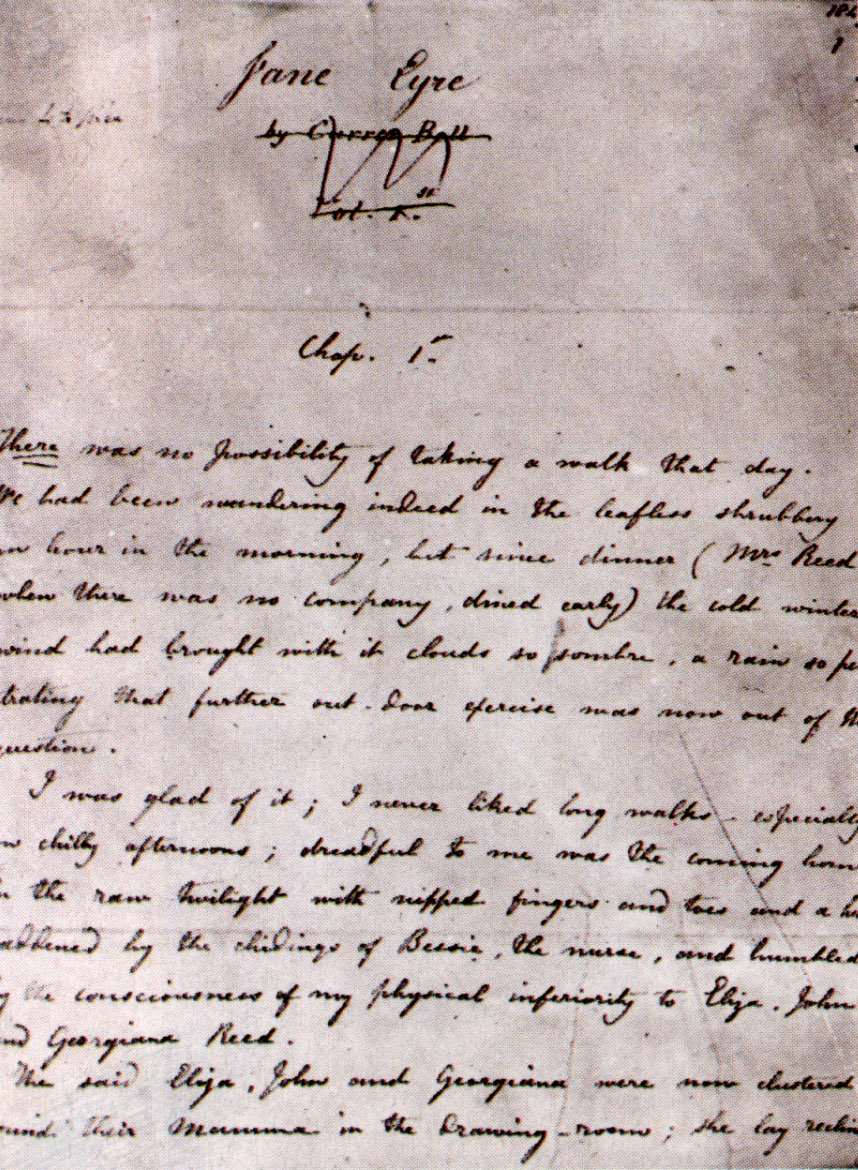 184
1
Jane Eyre
by Currer Bell
Vol. 1.st
Chap. 1st
There was no possibility of taking a walk that day.
We had been wandering indeed in the leafless shrubbery
an hour in the morning, but since dinner (Mrs Reed
when there was no company, dined early) the cold winter
wind had brought with it clouds so sombre, a rain so pe
trating that further out-door exercise was now out of th
question.
I was glad of it; I never liked long walks - especially
on chilly afternoons; dreadful to me was the coming home
in the raw twilight with nipped fingers and toes and a he
addened by the chidings of Bessie, the nurse, and humbled
by the consciousness of my physical inferiority to Eliza, John
and Georgiana Reed.
The said Eliza, John and Georgiana were now clustered
ound their Mamma in the drawing-room; she lay reclin